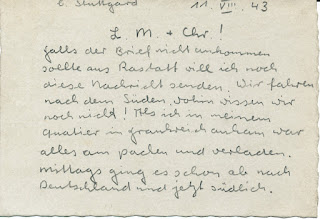 b. Stuttgard 11. VIII. 43
L. M. + Chr. !
falls der Brief nicht ankommen
sollte aus Rastatt will ich noch
diese Nachricht senden. Wir fahren
nach dem Süden, wohin wissen wir
noch nicht! Als ich in meinem
Quatier in Frankreich ankam war
alles am packen und verladen.
Mittags ging es schon ab nach
Deutschland und jetzt südlich.